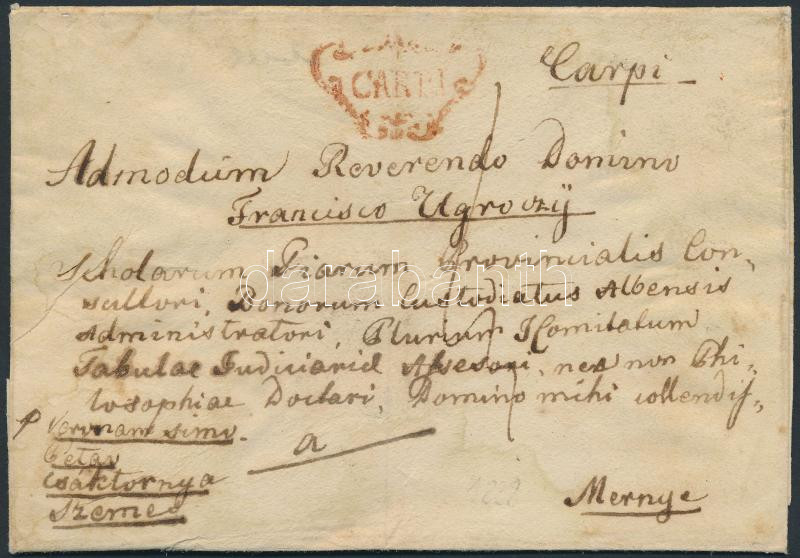 CARPI
Carpi
Admodum Reverendo Domino
Francisco Ugroczÿ
Scholarum Piarum Provincialis Con,
sultori, Bonorum Custodiatus Albensis
Administratori, Plurium I Comitatum
Tabulae Judiciariae Assesori, nec non Phi,
losophiae Doctori, Domino mihi collendis,
a
p Veronam
Csáktornya
Szemes
Mernye
darabanth